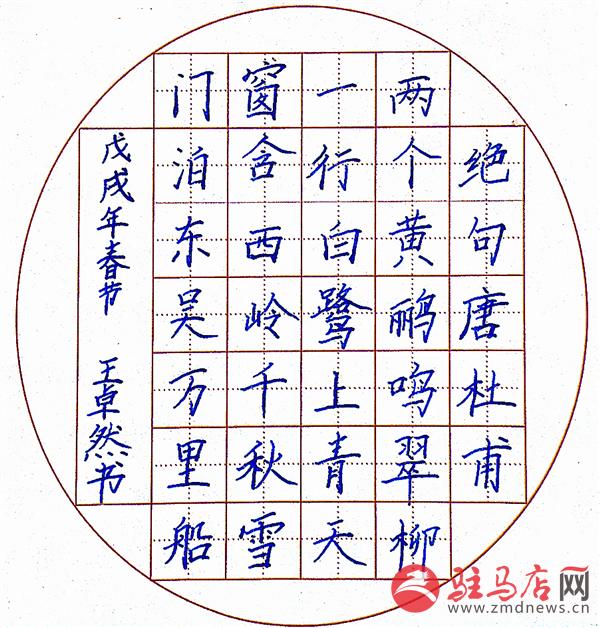 绝句唐杜甫
两个黄鹂鸣翠柳
一行白鹭上青天
窗含西岭千秋雪
门泊东吴万里船
戊戌年春节 王卓然书
驻马店网
www.zmdnews.cn